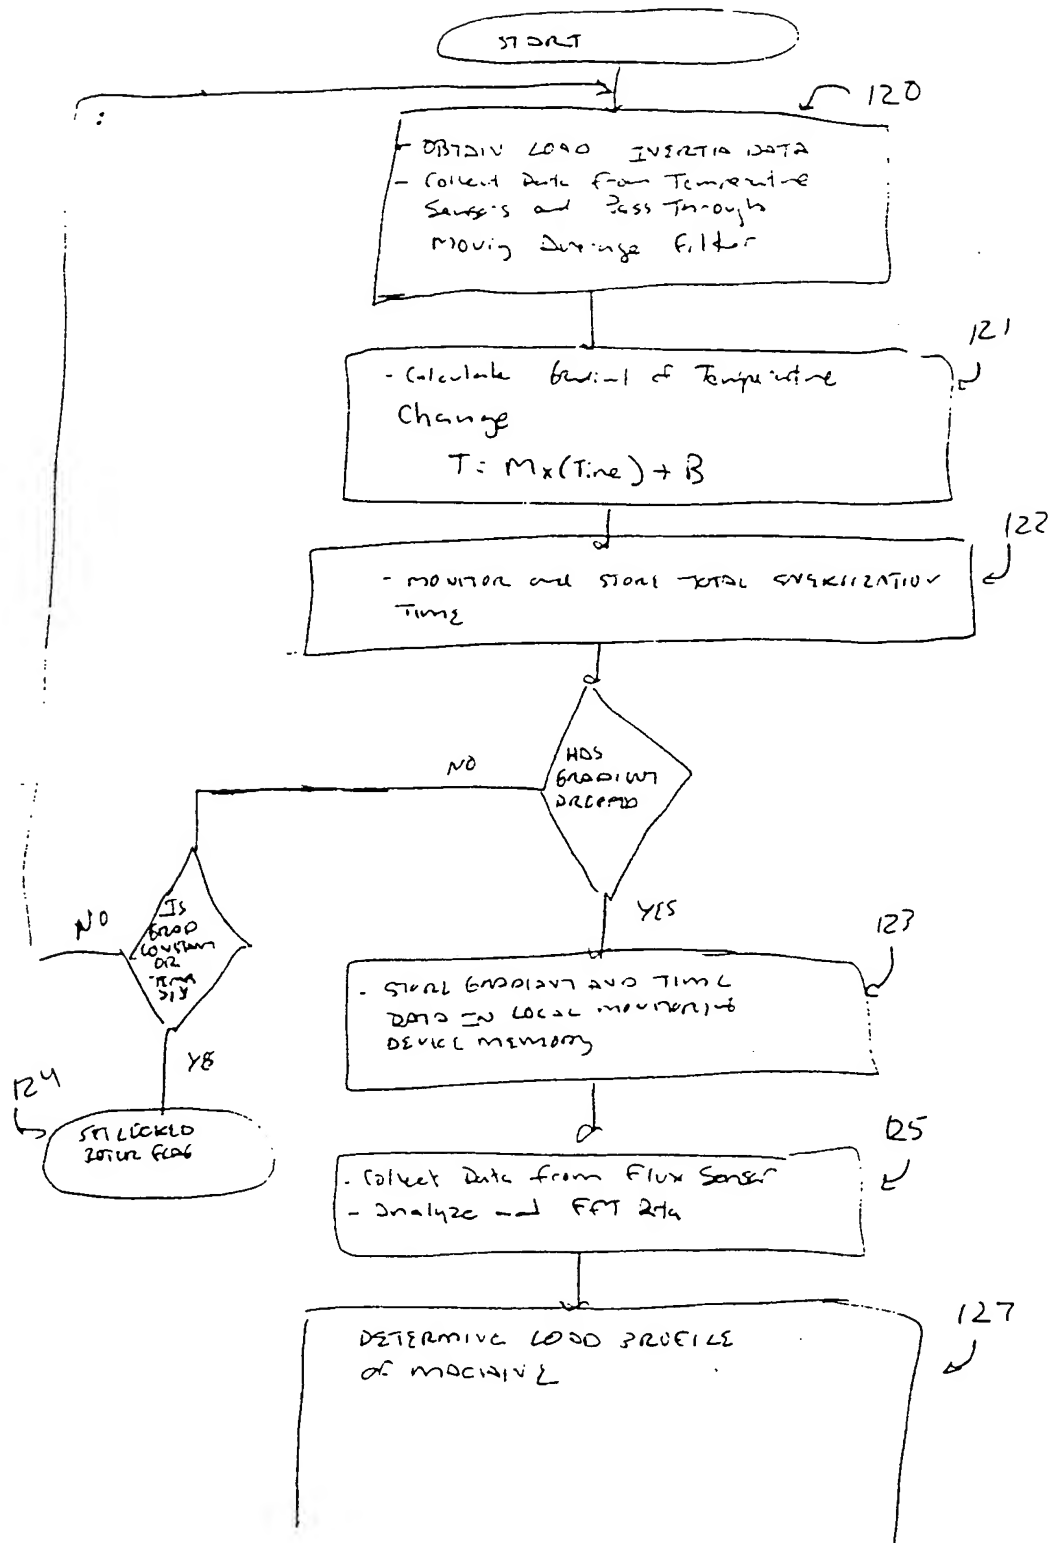 START
120
- OBTAIN LOAD INERTIA DATA
- Collect Data from Temperature
Sensors and Pass Through
Moving Average Filter
121
- Calculate Gradient of Temperature
Change
T = M x (Time) + B
122
- MONITOR and STORE TOTAL ENERGIZATION
TIME
HAS
GRADIENT
DROPPED
NO
YES
IS
GRAD
CONSTANT
OR
NO
YES
123
- STORE GRADIENT AND TIME
DATA IN LOCAL MONITORING
DEVICE MEMORY
124
SET LOCKED
ROTOR FLAG
125
- Collect Data from Flux Sensor
- Analyze and FFT Data
127
DETERMINE LOAD PROFILE
OF MACHINE